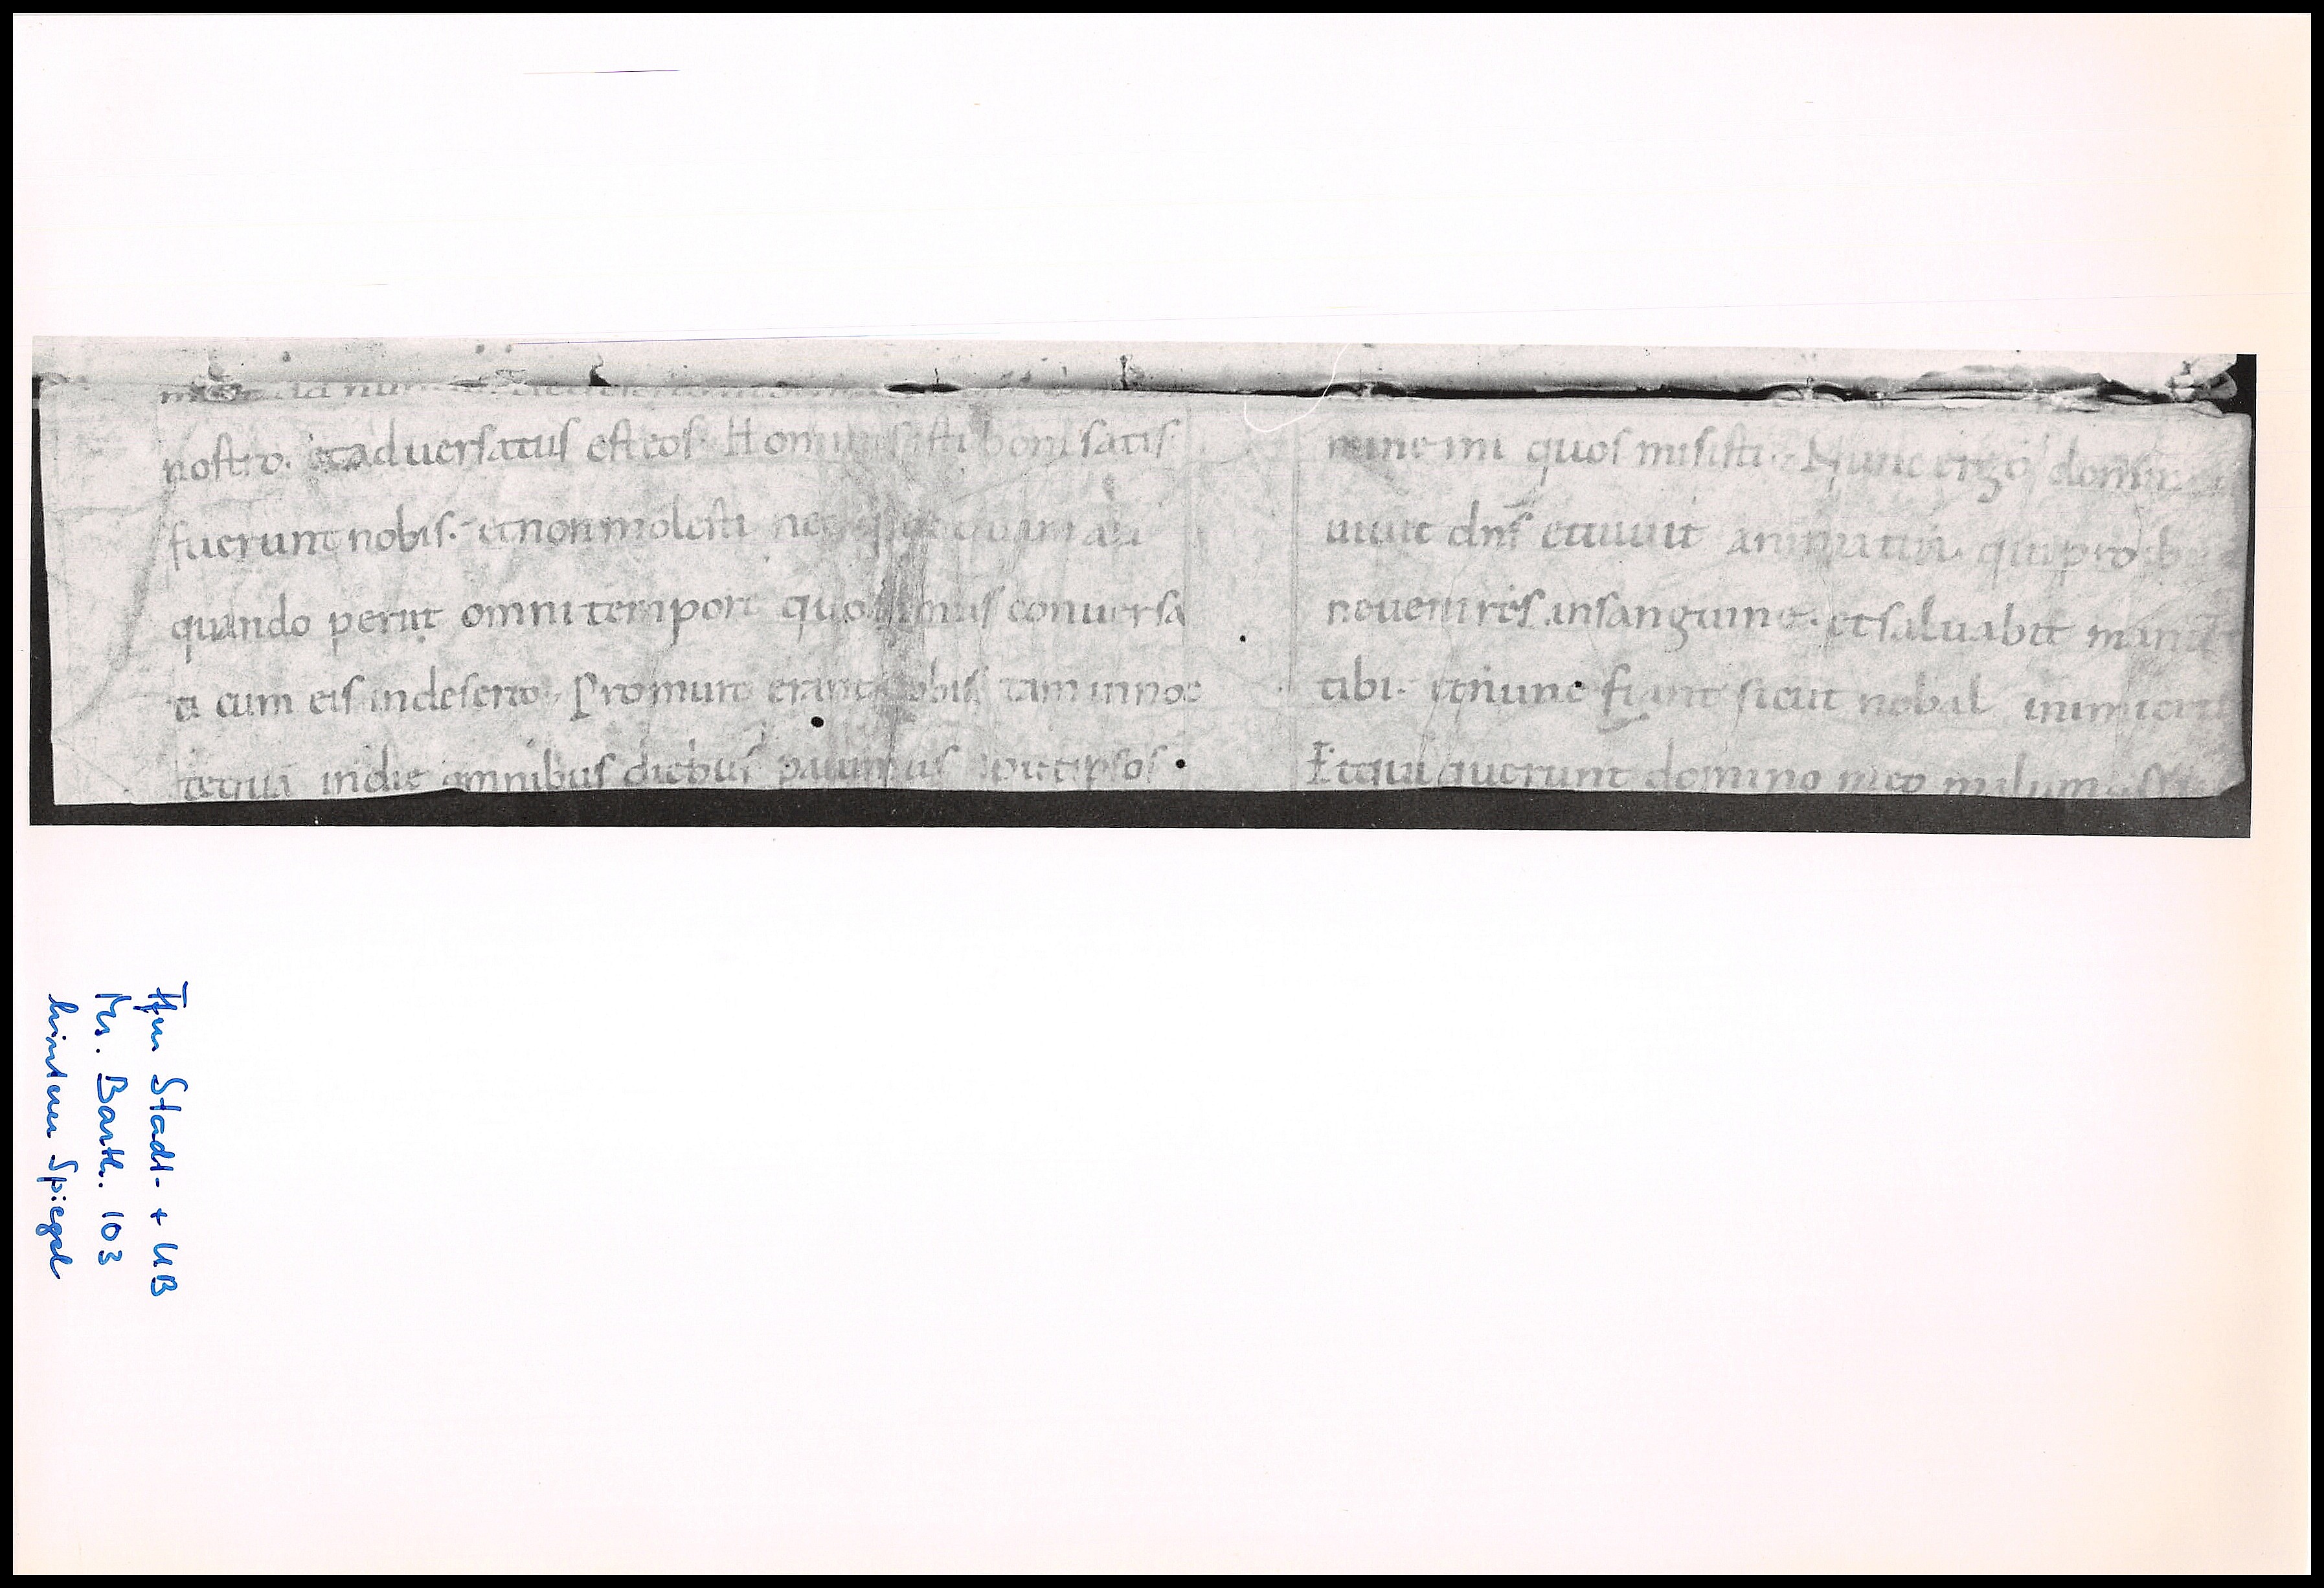 nostro. etadversatus est eos. Homines isti boni satis.
fuerunt nobis. et non molesti nec ali
quando periit omni tempore quo conversa
ti cum eis in deserto. Pro muro erant nobis tam in noc
te quā in die omnibus diebus pavimus ipsos.
mine mi quos misisti. Nunc ergo domin
vivit dns et vivit anima tua. qui prohib
ne venires in sanguine. et salvabit manū
tibi. et nunc fiant sicut nabal inimici
Et qui querunt domino meo malum
Ffm Stadt- + UB
Ms. Barth. 103
hinterer Spiegel